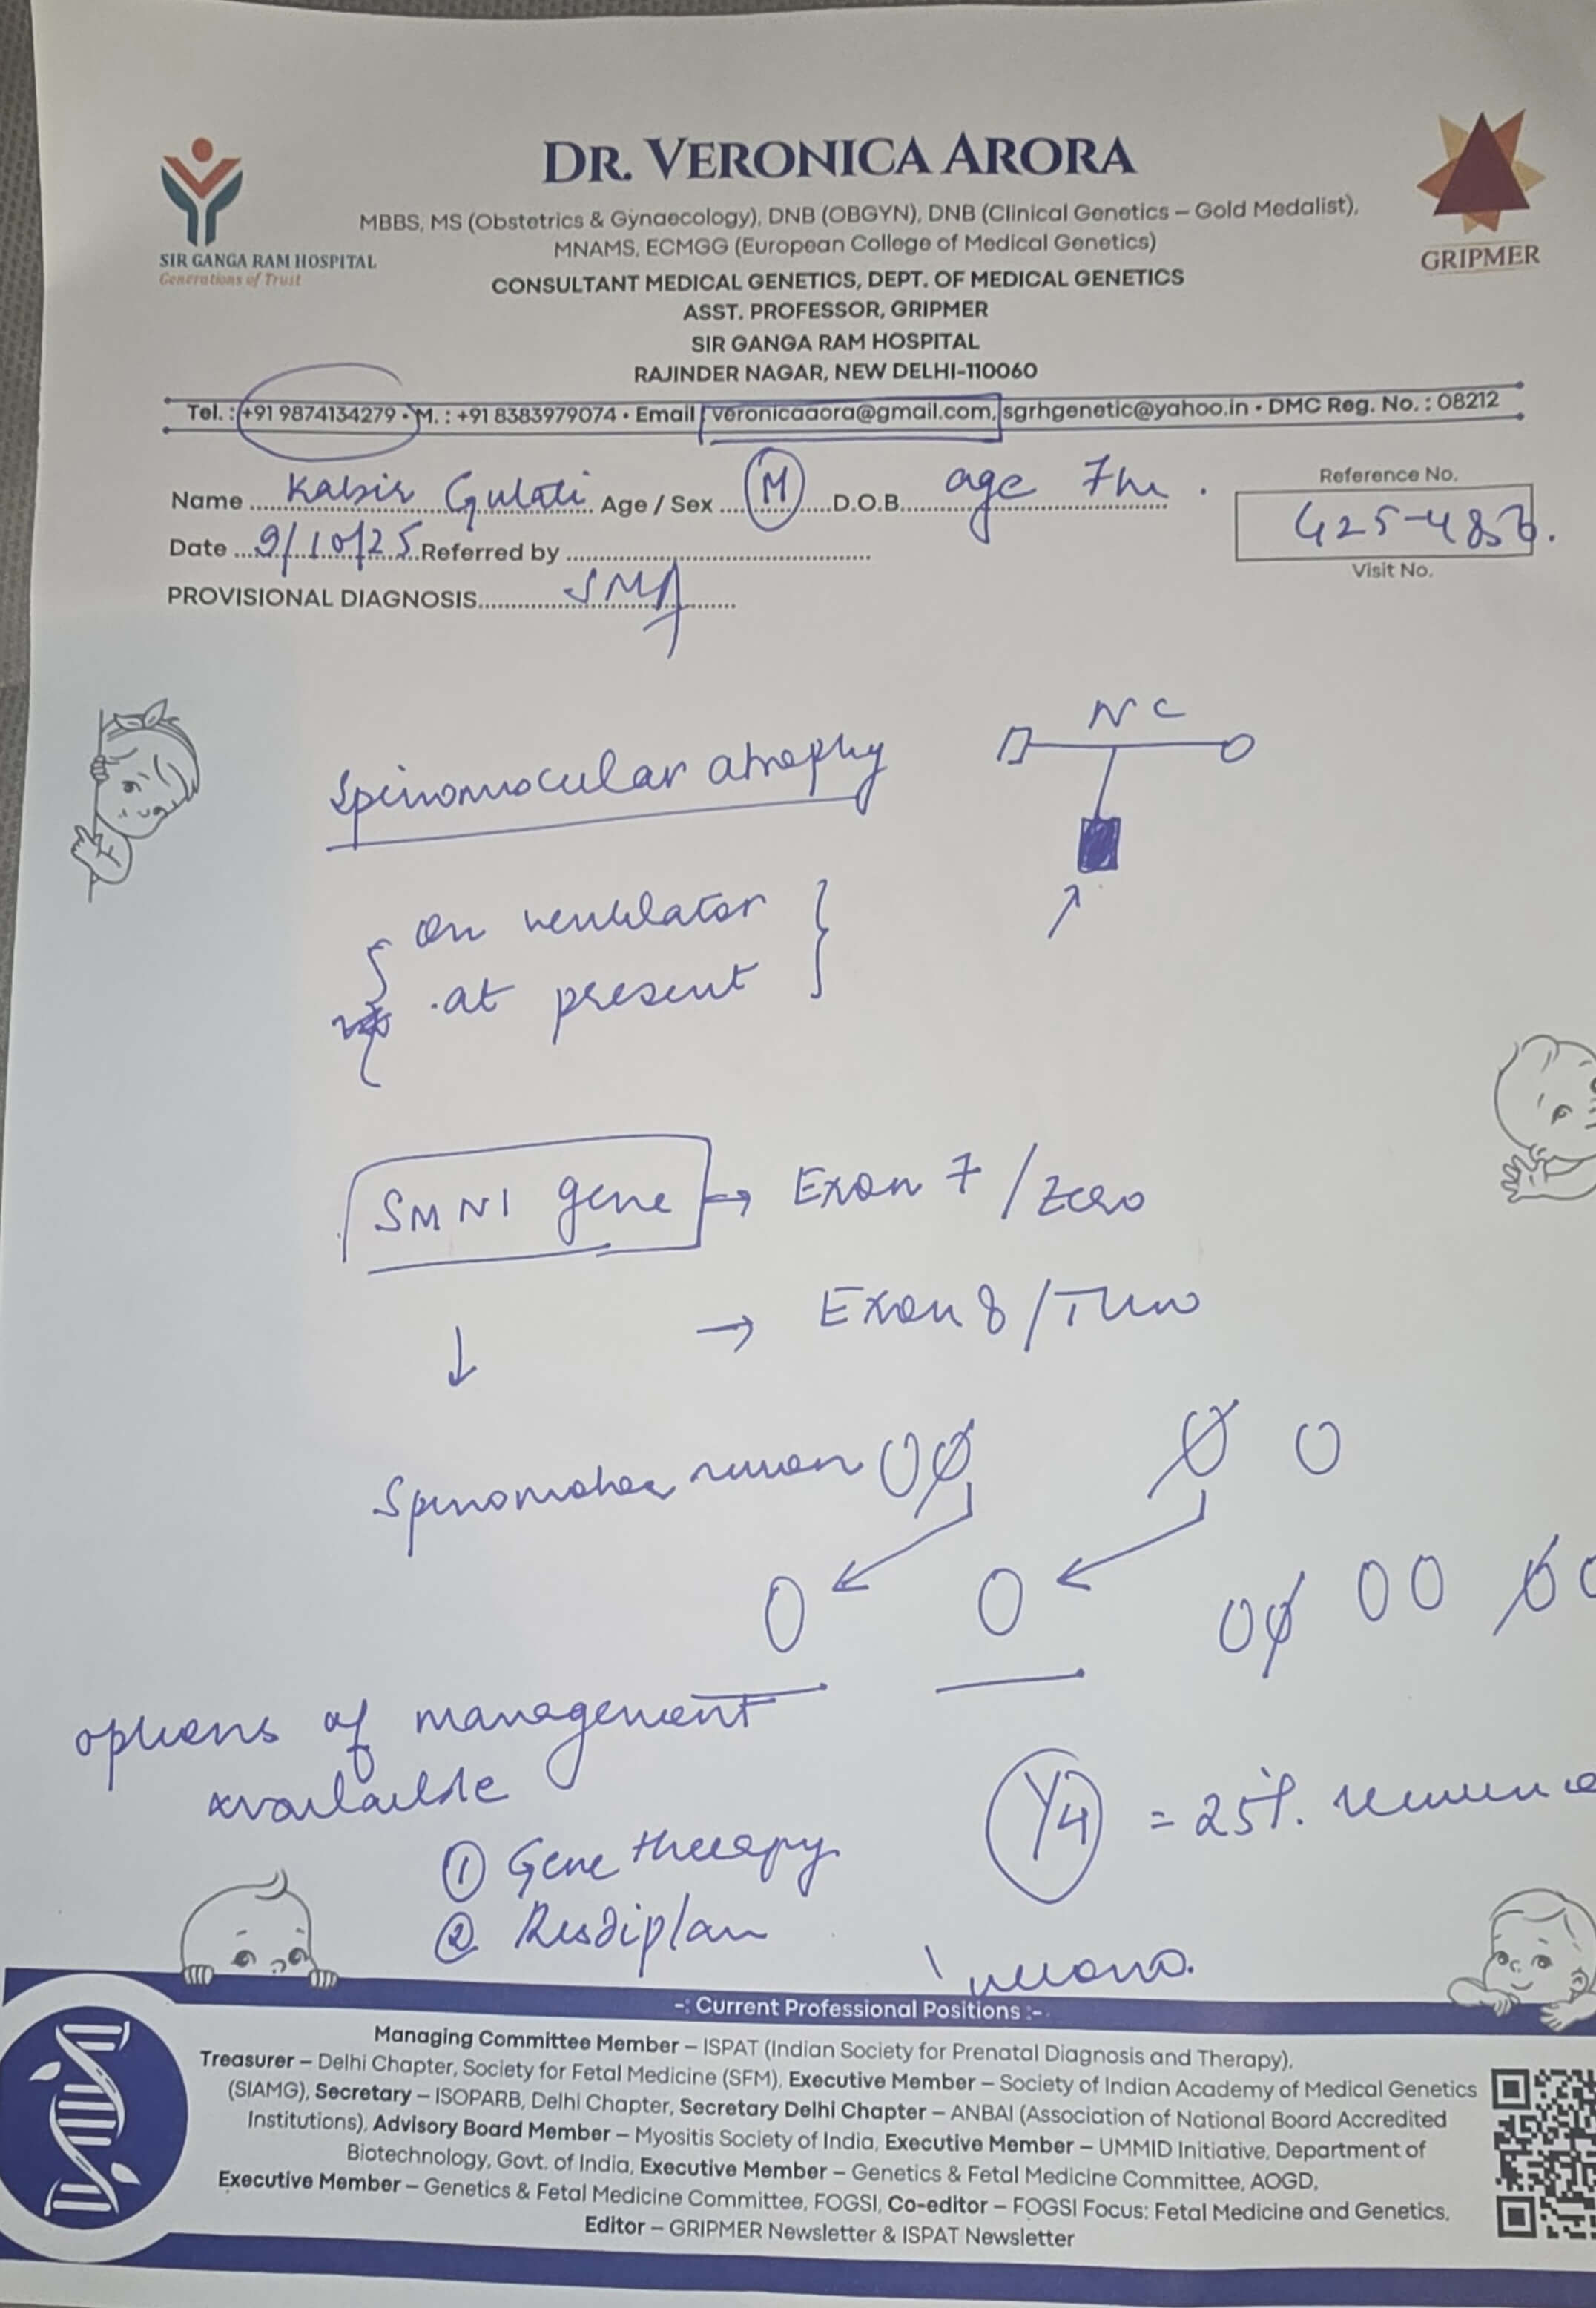 DR. VERONICA ARORA
MBBS, MS (Obstetrics & Gynaecology), DNB (OBGYN), DNB (Clinical Genetics – Gold Medalist),
MNAMS, ECMGG (European College of Medical Genetics)
CONSULTANT MEDICAL GENETICS, DEPT. OF MEDICAL GENETICS
ASST. PROFESSOR, GRIPMER
SIR GANGA RAM HOSPITAL
RAJINDER NAGAR, NEW DELHI-110060
SIR GANGA RAM HOSPITAL
Generations of Trust
GRIPMER
Tel. : +91 9874134279 • M. : +91 8383979074 • Email veronicaaora@gmail.com, sgrhgenetic@yahoo.in • DMC Reg. No. : 08212
Name Kabir Gulati Age / Sex M D.O.B. age 7m
Reference No.
Date 9/10/25 Referred by
Visit No.
PROVISIONAL DIAGNOSIS SMA
NC
Spinomocular atrophy
on ventilator
at present
SMN1 gene → Exon 7 / Zero
→ Exon 8 /
options of management
available
1/4 = 25%.
① Gene therapy
② Risdiplam
-: Current Professional Positions :-
Managing Committee Member – ISPAT (Indian Society for Prenatal Diagnosis and Therapy),
Treasurer – Delhi Chapter, Society for Fetal Medicine (SFM), Executive Member – Society of Indian Academy of Medical Genetics
(SIAMG), Secretary – ISOPARB, Delhi Chapter, Secretary Delhi Chapter – ANBAI (Association of National Board Accredited
Institutions), Advisory Board Member – Myositis Society of India, Executive Member – UMMID Initiative, Department of
Biotechnology, Govt. of India, Executive Member – Genetics & Fetal Medicine Committee, AOGD,
Executive Member – Genetics & Fetal Medicine Committee, FOGSI, Co-editor – FOGSI Focus: Fetal Medicine and Genetics,
Editor – GRIPMER Newsletter & ISPAT Newsletter